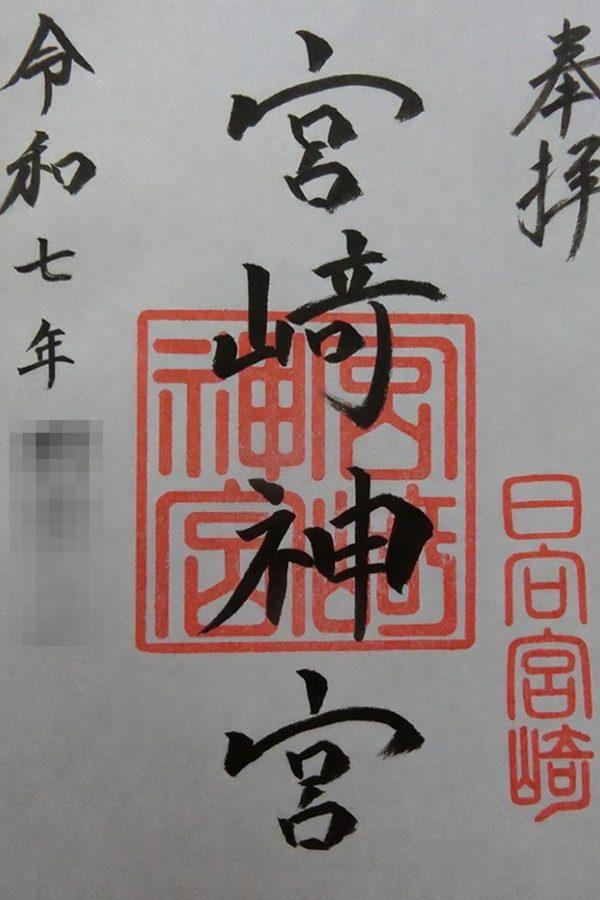 奉拝
日向宮崎
宮﨑神宮
宮崎神宮
令和七年